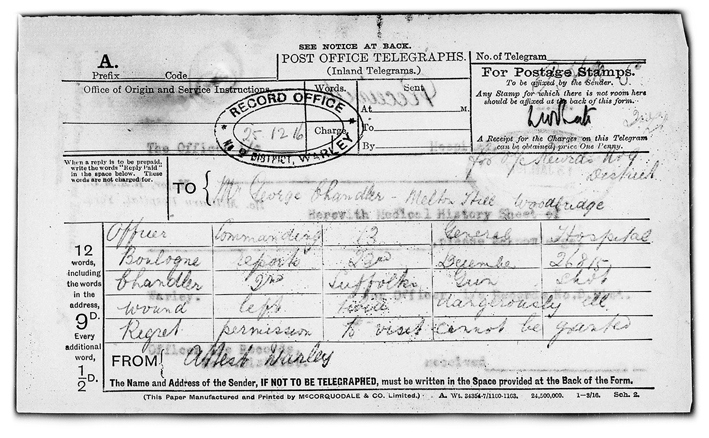 SEE NOTICE AT BACK.
A.
POST OFFICE TELEGRAPHS.
(Inland Telegrams.)
No. of Telegram
Prefix Code
Office of Origin and Service Instructions.
Words.
Sent
At M.
To
By
Charge
RECORD OFFICE
25 12 16
DISTRICT, WARLEY
For Postage Stamps.
To be affixed by the Sender.
Any Stamp for which there is not room here
should be affixed at the back of this form.
A Receipt for the Charges on this Telegram
can be obtained, price One Penny.
District
When a reply is to be prepaid,
write the words "Reply Paid"
in the space below. These
words are not charged for.
TO
Mr George Chandler - Melton Hill Woodbridge
Herewith Medical History Sheet of
12
words,
including
the words
in the
address,
9D.
Every
additional
word,
1/2D.
Officer Commanding 13 General Hospital
Boulogne reports 23rd December 26815
Chandler 2nd Suffolks Gun shot
wound left dangerously ill
Regret permission to visit cannot be granted
FROM Warley
received
The Name and Address of the Sender, IF NOT TO BE TELEGRAPHED, must be written in the Space provided at the Back of the Form.
(This Paper Manufactured and Printed by McCORQUODALE & CO. Limited.) A. Wt. 24354-7/1160-1163. 24,500,000. 1-3/16. Sch. 2.